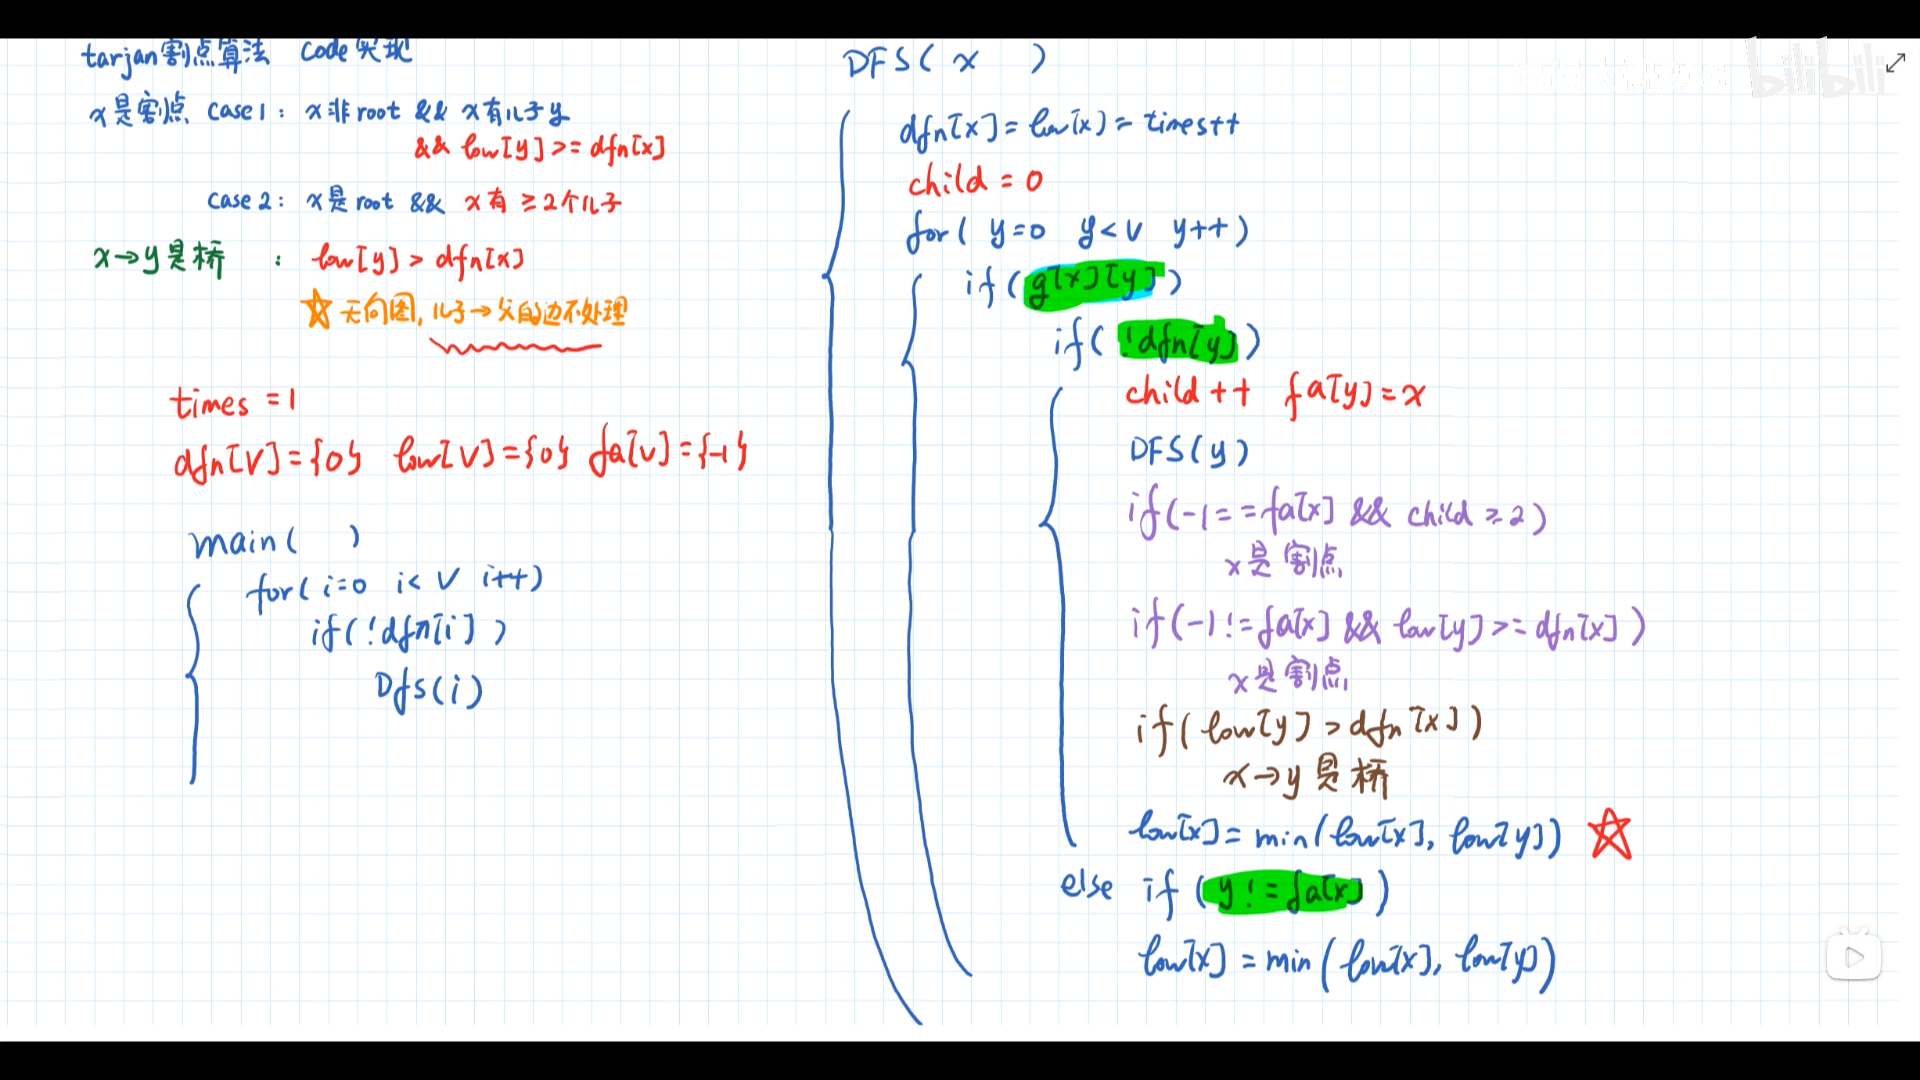 tarjan割点算法 Code实现
x是割点 case1: x非root && x有儿子y
&& low[y]>=dfn[x]
case2: x是root && x有≥2个儿子
x→y是桥 : low[y]>dfn[x]
☆无向图,儿子→父的边不处理
times =1
dfn[V]={0} low[V]={0} fa[V]={-1}
main( )
for(i=0 i<V i++)
if(!dfn[i])
Dfs(i)
DFS(x )
dfn[x]=low[x]=times++
child=0
for( y=0 y<V y++)
if(g[x][y])
if(!dfn[y])
child++ fa[y]=x
DFS(y)
if(-1==fa[x] && child≥2)
x是割点
if(-1!=fa[x] && low[y]>=dfn[x])
x是割点
if(low[y]>dfn[x])
x→y是桥
low[x]=min(low[x],low[y]) ☆
else if (y!=fa[x])
low[x]=min(low[x],low[y])
bilibili